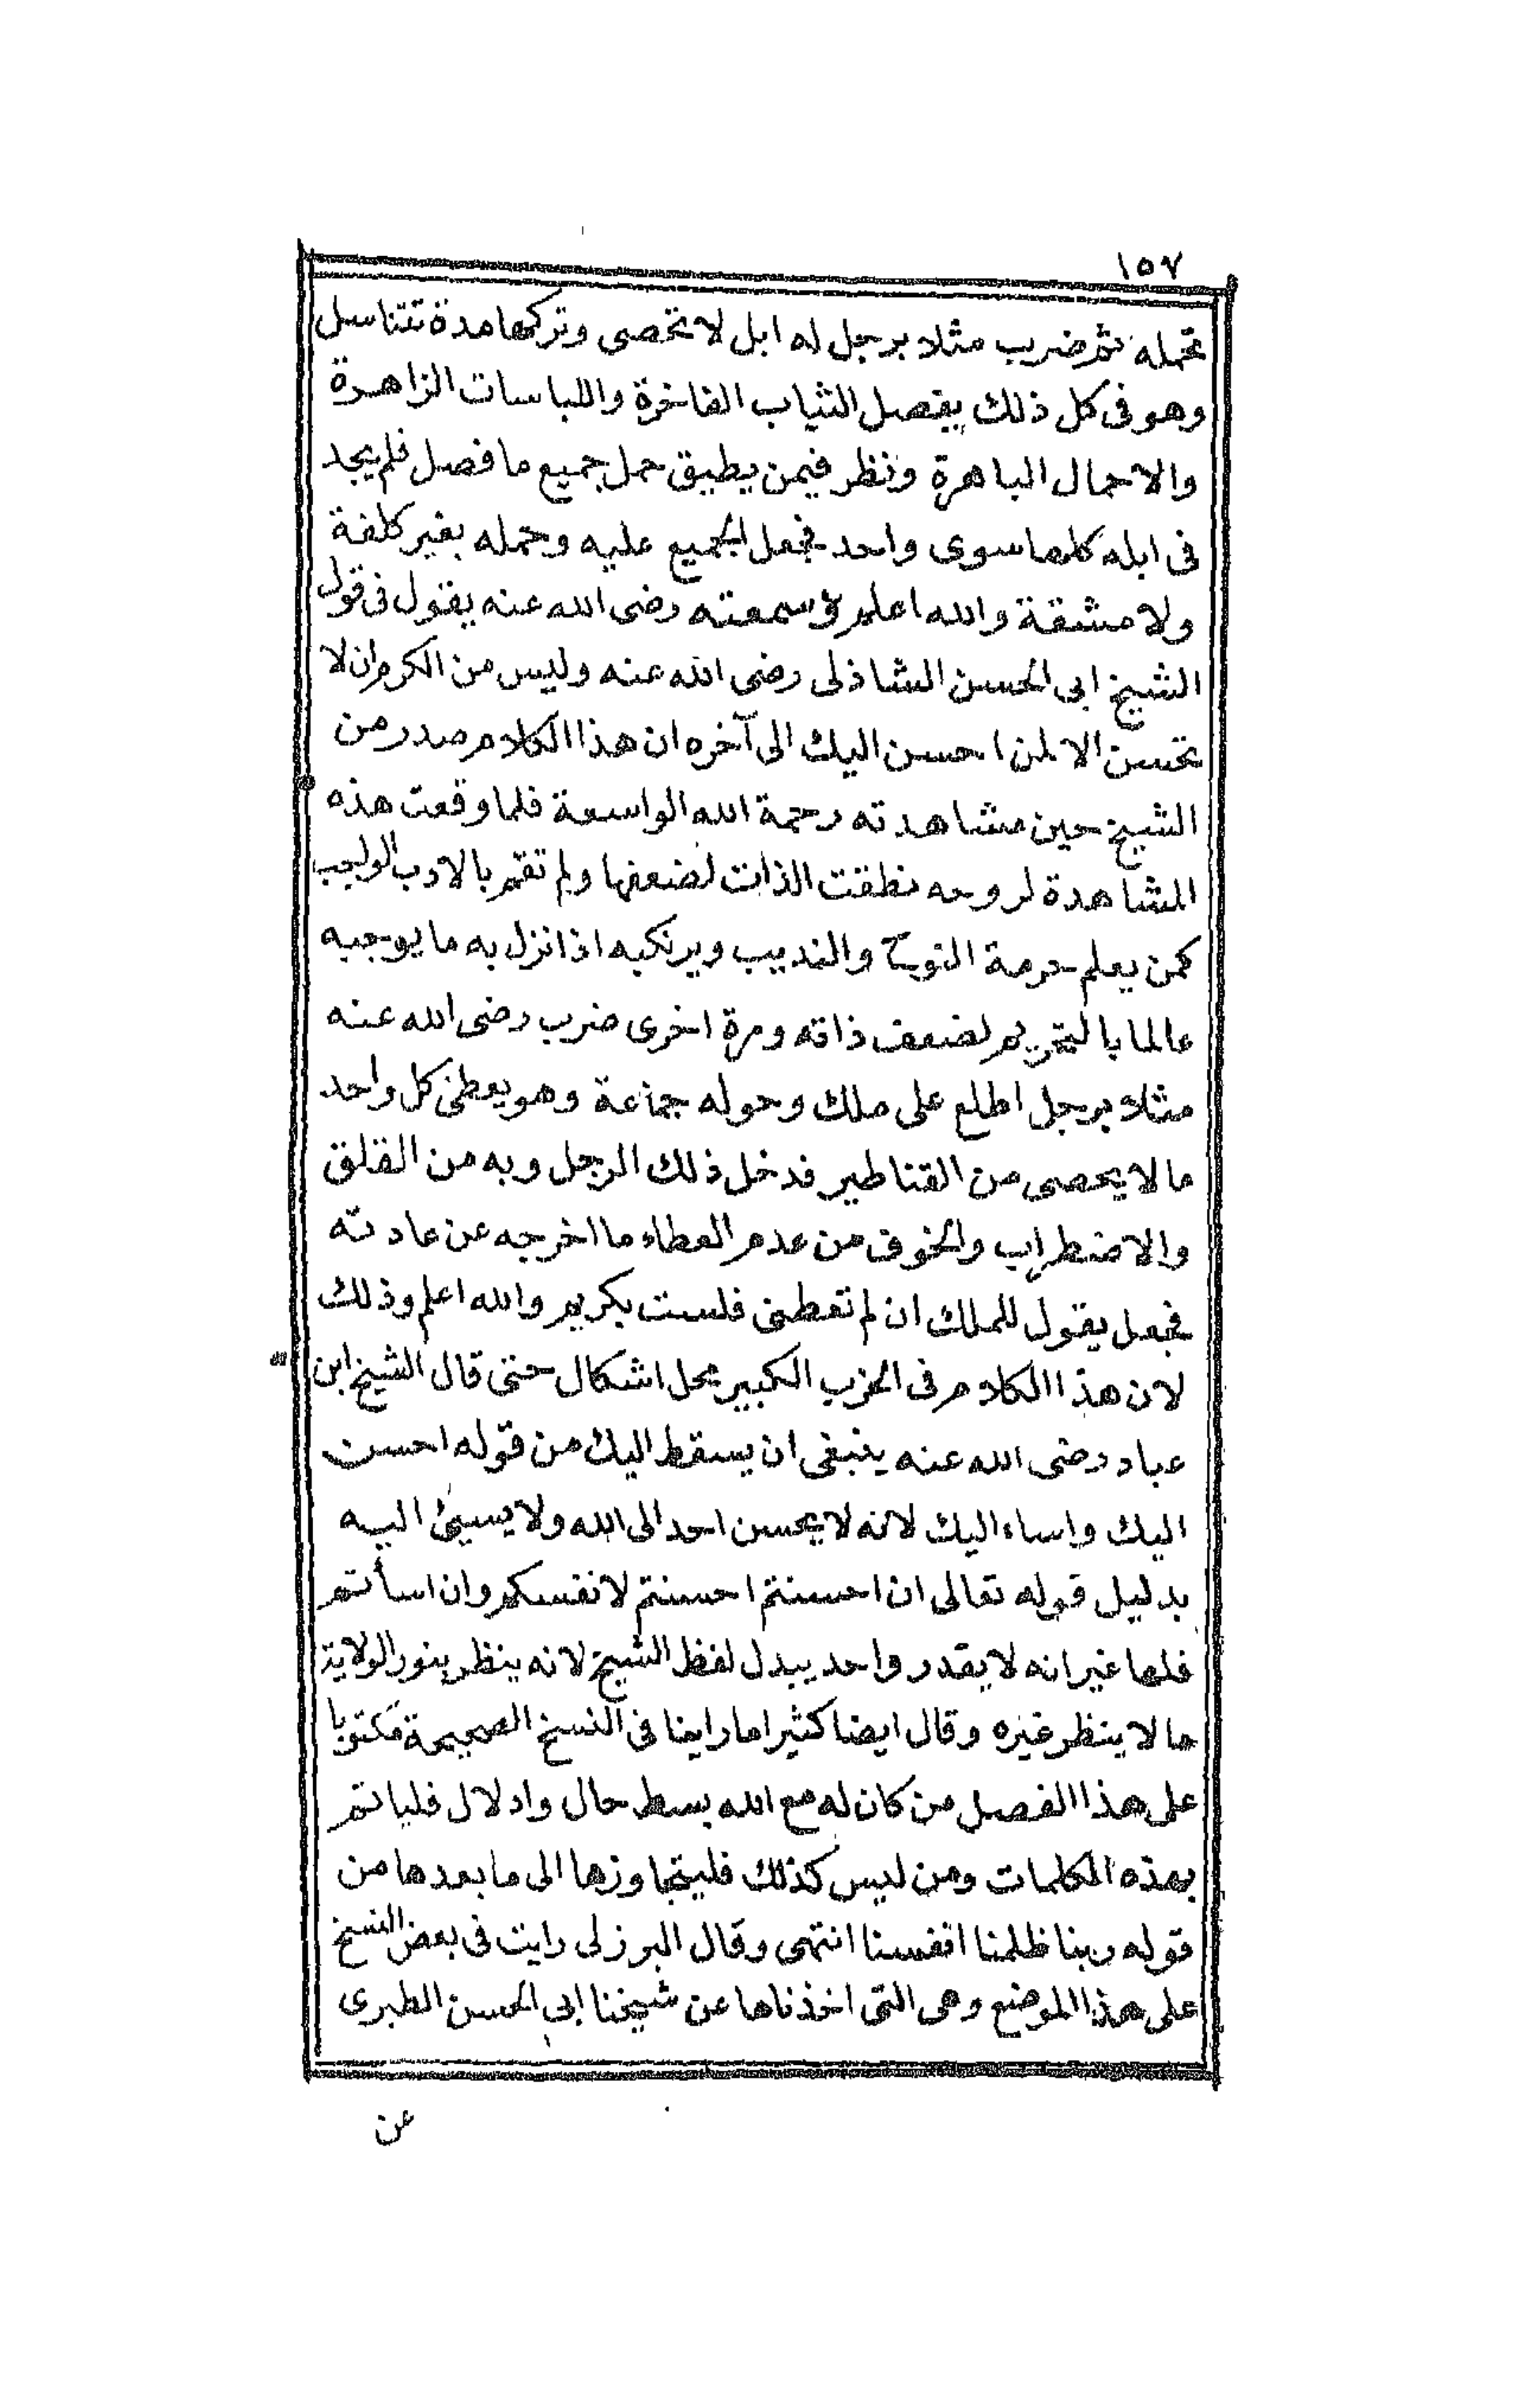 ١٥٧
تحمله ثم ضرب مثلا برجل له ابل لا تحصى وتركها مدة تتناسل
وهو فى كل ذلك يفصل الثياب الفاخرة واللباسات الزاهرة
والاحمال الباهرة ونظر فيمن يطيق حمل جميع ما فصل فلم يجد
فى ابله كلها سوى واحد فجعل الجميع عليه وحمله بغير كلفة
ولا مشقة والله اعلم وسمعته رضى الله عنه يقول فى قول
الشيخ ابى الحسن الشاذلى رضى الله عنه وليس من الكرم ان لا
تحسن الا لمن احسن اليك الى آخره ان هذا الكلام صدر من
الشيخ حين مشاهدته رحمة الله الواسعة فلما وقعت هذه
المشاهدة لروحه نطقت الذات لضعفها ولم تقم بالادب الواجب
كمن يعلم حرمة النوح والنديب ويرتكبه اذا نزل به ما يوجبه
عالما بالتحريم لضعف ذاته ومرة اخرى ضرب رضى الله عنه
مثلا برجل اطلع على ملك وحوله جماعة وهو يعطى كل واحد
ما لا يحصى من القناطير فدخل ذلك الرجل وبه من القلق
والاضطراب والخوف من عدم العطاء ما اخرجه عن عادته
فجعل يقول للملك ان لم تعطنى فلست بكريم والله اعلم وذلك
لان هذا الكلام فى الحزب الكبير محل اشكال حتى قال الشيخ ابن
عباد رضى الله عنه ينبغى ان يسقط اليك من قوله احسن
اليك واساء اليك لانه لا يحسن احد الى الله ولا يسيئ اليه
بدليل قوله تعالى ان احسنتم احسنتم لانفسكم وان اسأتم
فلها غير انه لا يقدر واحد يبدل لفظ الشيخ لانه ينظر بنور الولاية
ما لا ينظر غيره وقال ايضا كثيرا ما راينا فى النسخ الصحيحة مكتوبا
على هذا الفصل من كان له مع الله بسط حال وادلال فليا تم
بهذه الكلمات ومن ليس كذلك فليتجاوزها الى ما بعدها من
قوله ربنا ظلمنا انفسنا انتهى وقال البرزلى رايت فى بعض النسخ
على هذا الموضع وهى التى اخذناها عن شيخنا ابى الحسن الطبرى
عن